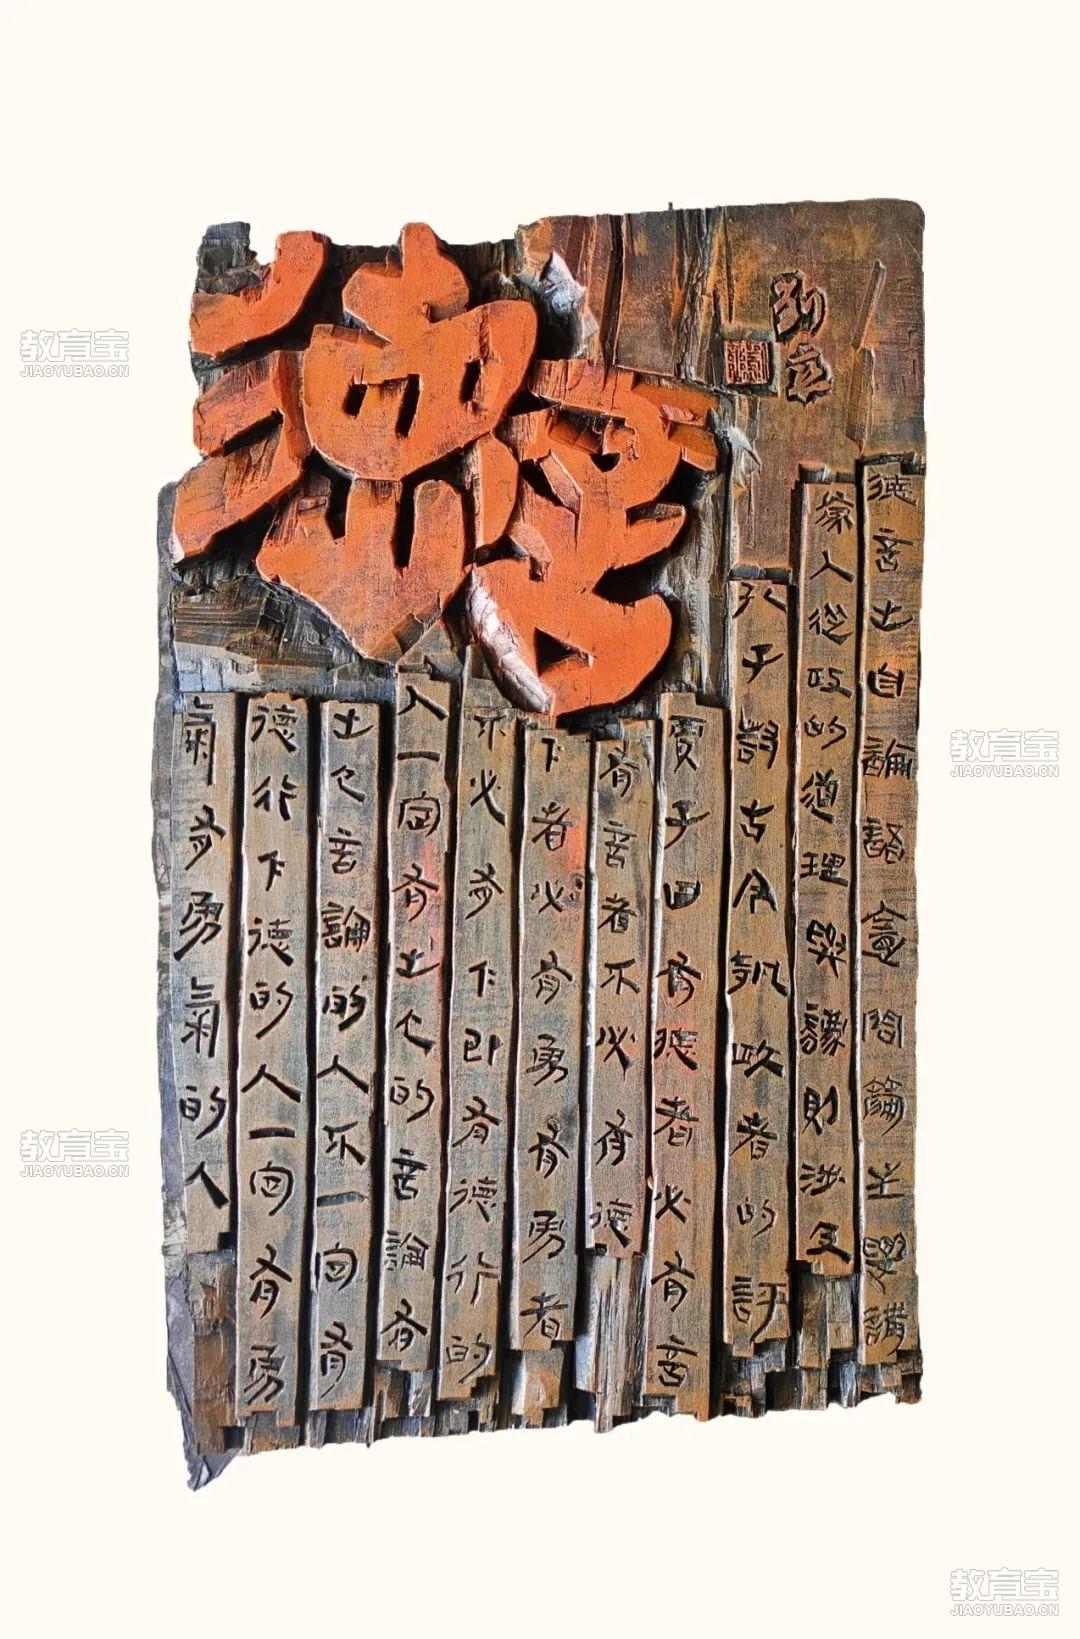 德言
德言出自論語憲問篇主要講
做人從政的道理與謙則涉及
孔子對古今執政者的評
賈子曰有德者必有言
有言者不必有德
仁者必有勇有勇者
不必有仁即有德行的
人一定有出色的言論有
出色言論的人不一定有
德行仁德的人一定有勇
氣有勇氣的人
教育宝
JIAOYUBAO.CN
教育宝
JIAOYUBAO.CN
教育宝
JIAOYUBAO.CN
教育宝
JIAOYUBAO.CN